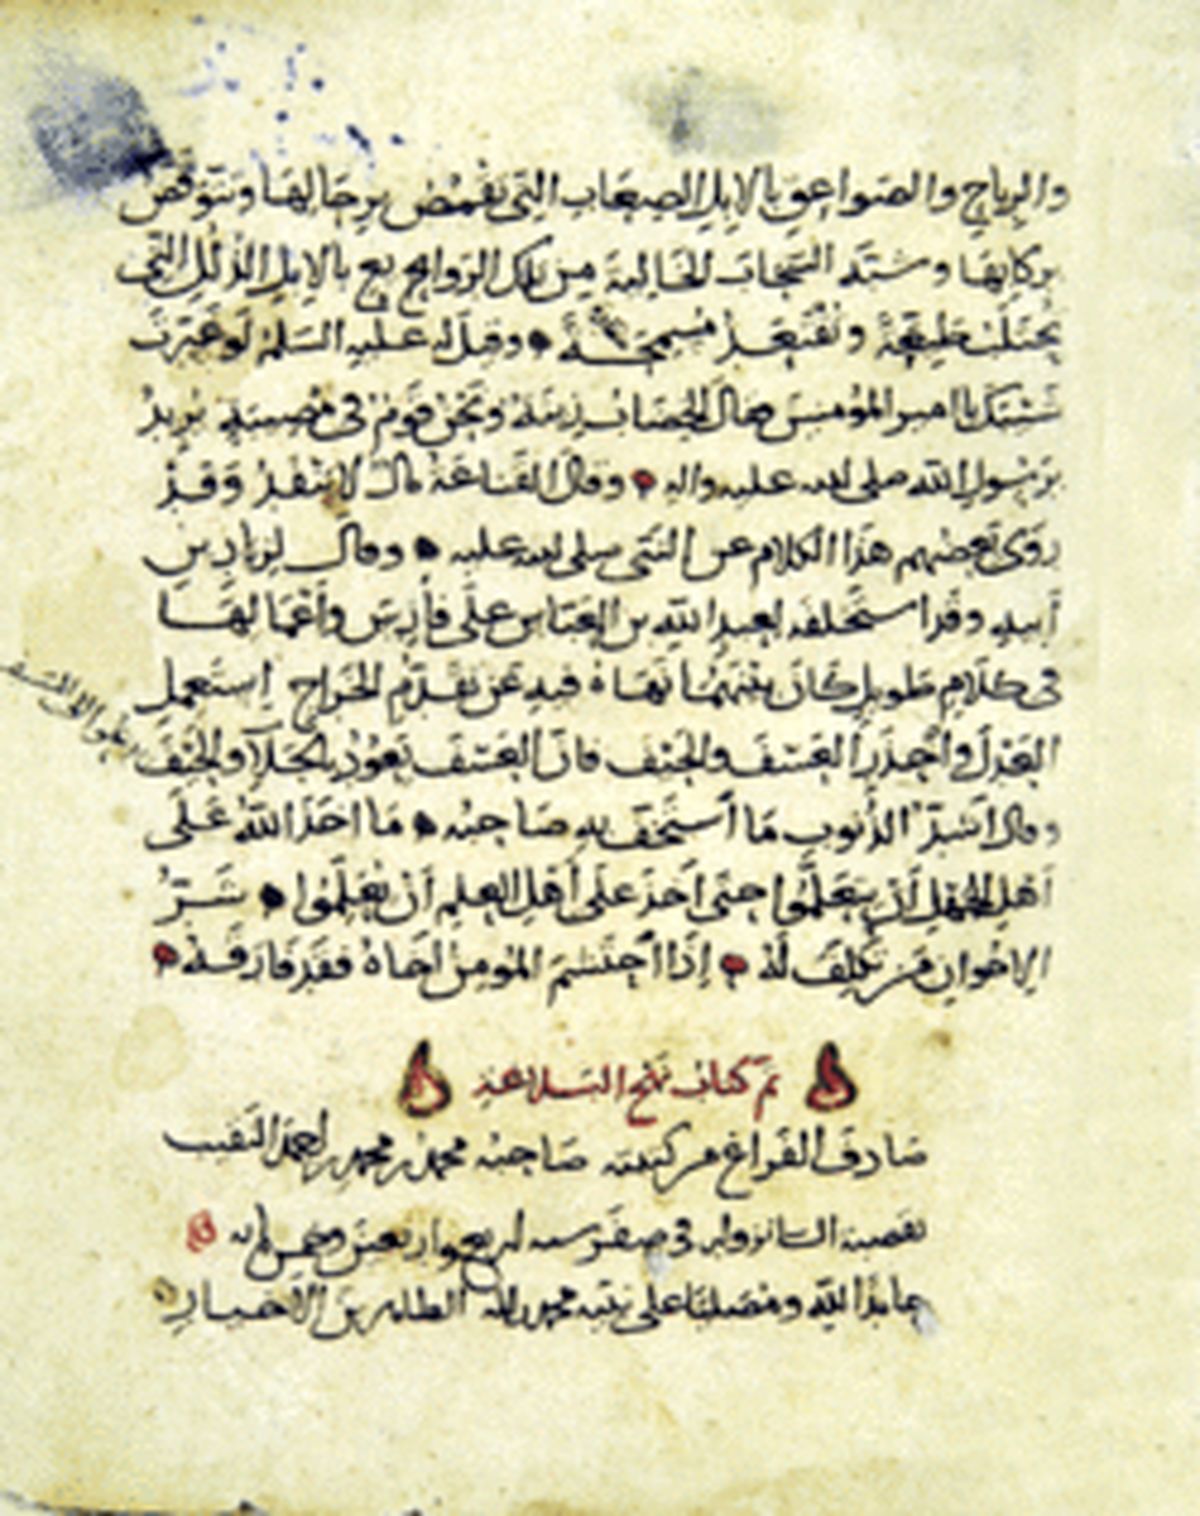 والرياح والصواعق بالابل الصعاب التي تقمص برحالها وتتوقص
بركابها وشبه السحاب الخالية من تلك الروائع بالابل الذلل التي
تحتلب طيعة وتقتعد مسمحة وقيل له عليه السلم لو غيرت
شيبك يا امير المومنين فقال الخضاب زينة ونحن قوم في مصيبة يريد
برسول الله صلى الله عليه واله وقال القناعة مال لا ينفد وقد
روى بعضهم هذا الكلام عن النبي صلى الله عليه وقال لزياد بن
ابيه وقد استخلفه لعبد الله بن العباس على فارس واعمالها
في كلام طويل كان بينهما نهاه فيه عن تقدم الخراج استعمل
العدل واحذر العسف والحيف فان العسف يعود بالجلاء والحيف
يدعو الى السيف
وقال اشد الذنوب ما استخف به صاحبه ما اخذ الله على
اهل الجهل ان يتعلموا حتى اخذ على اهل العلم ان يعلموا شر
الاخوان من تكلف له اذا احتشم المومن اخاه فقد فارقه
تم كتاب نهج البلاغة
صادف الفراغ من كتبته صاحبه محمد بن محمد بن احمد النقيب
بقصبة السانزوار في صفر سنه اربع واربعين وخمس مايه
حامدا لله ومصليا على نبيه محمد واله الطاهرين الاخيار